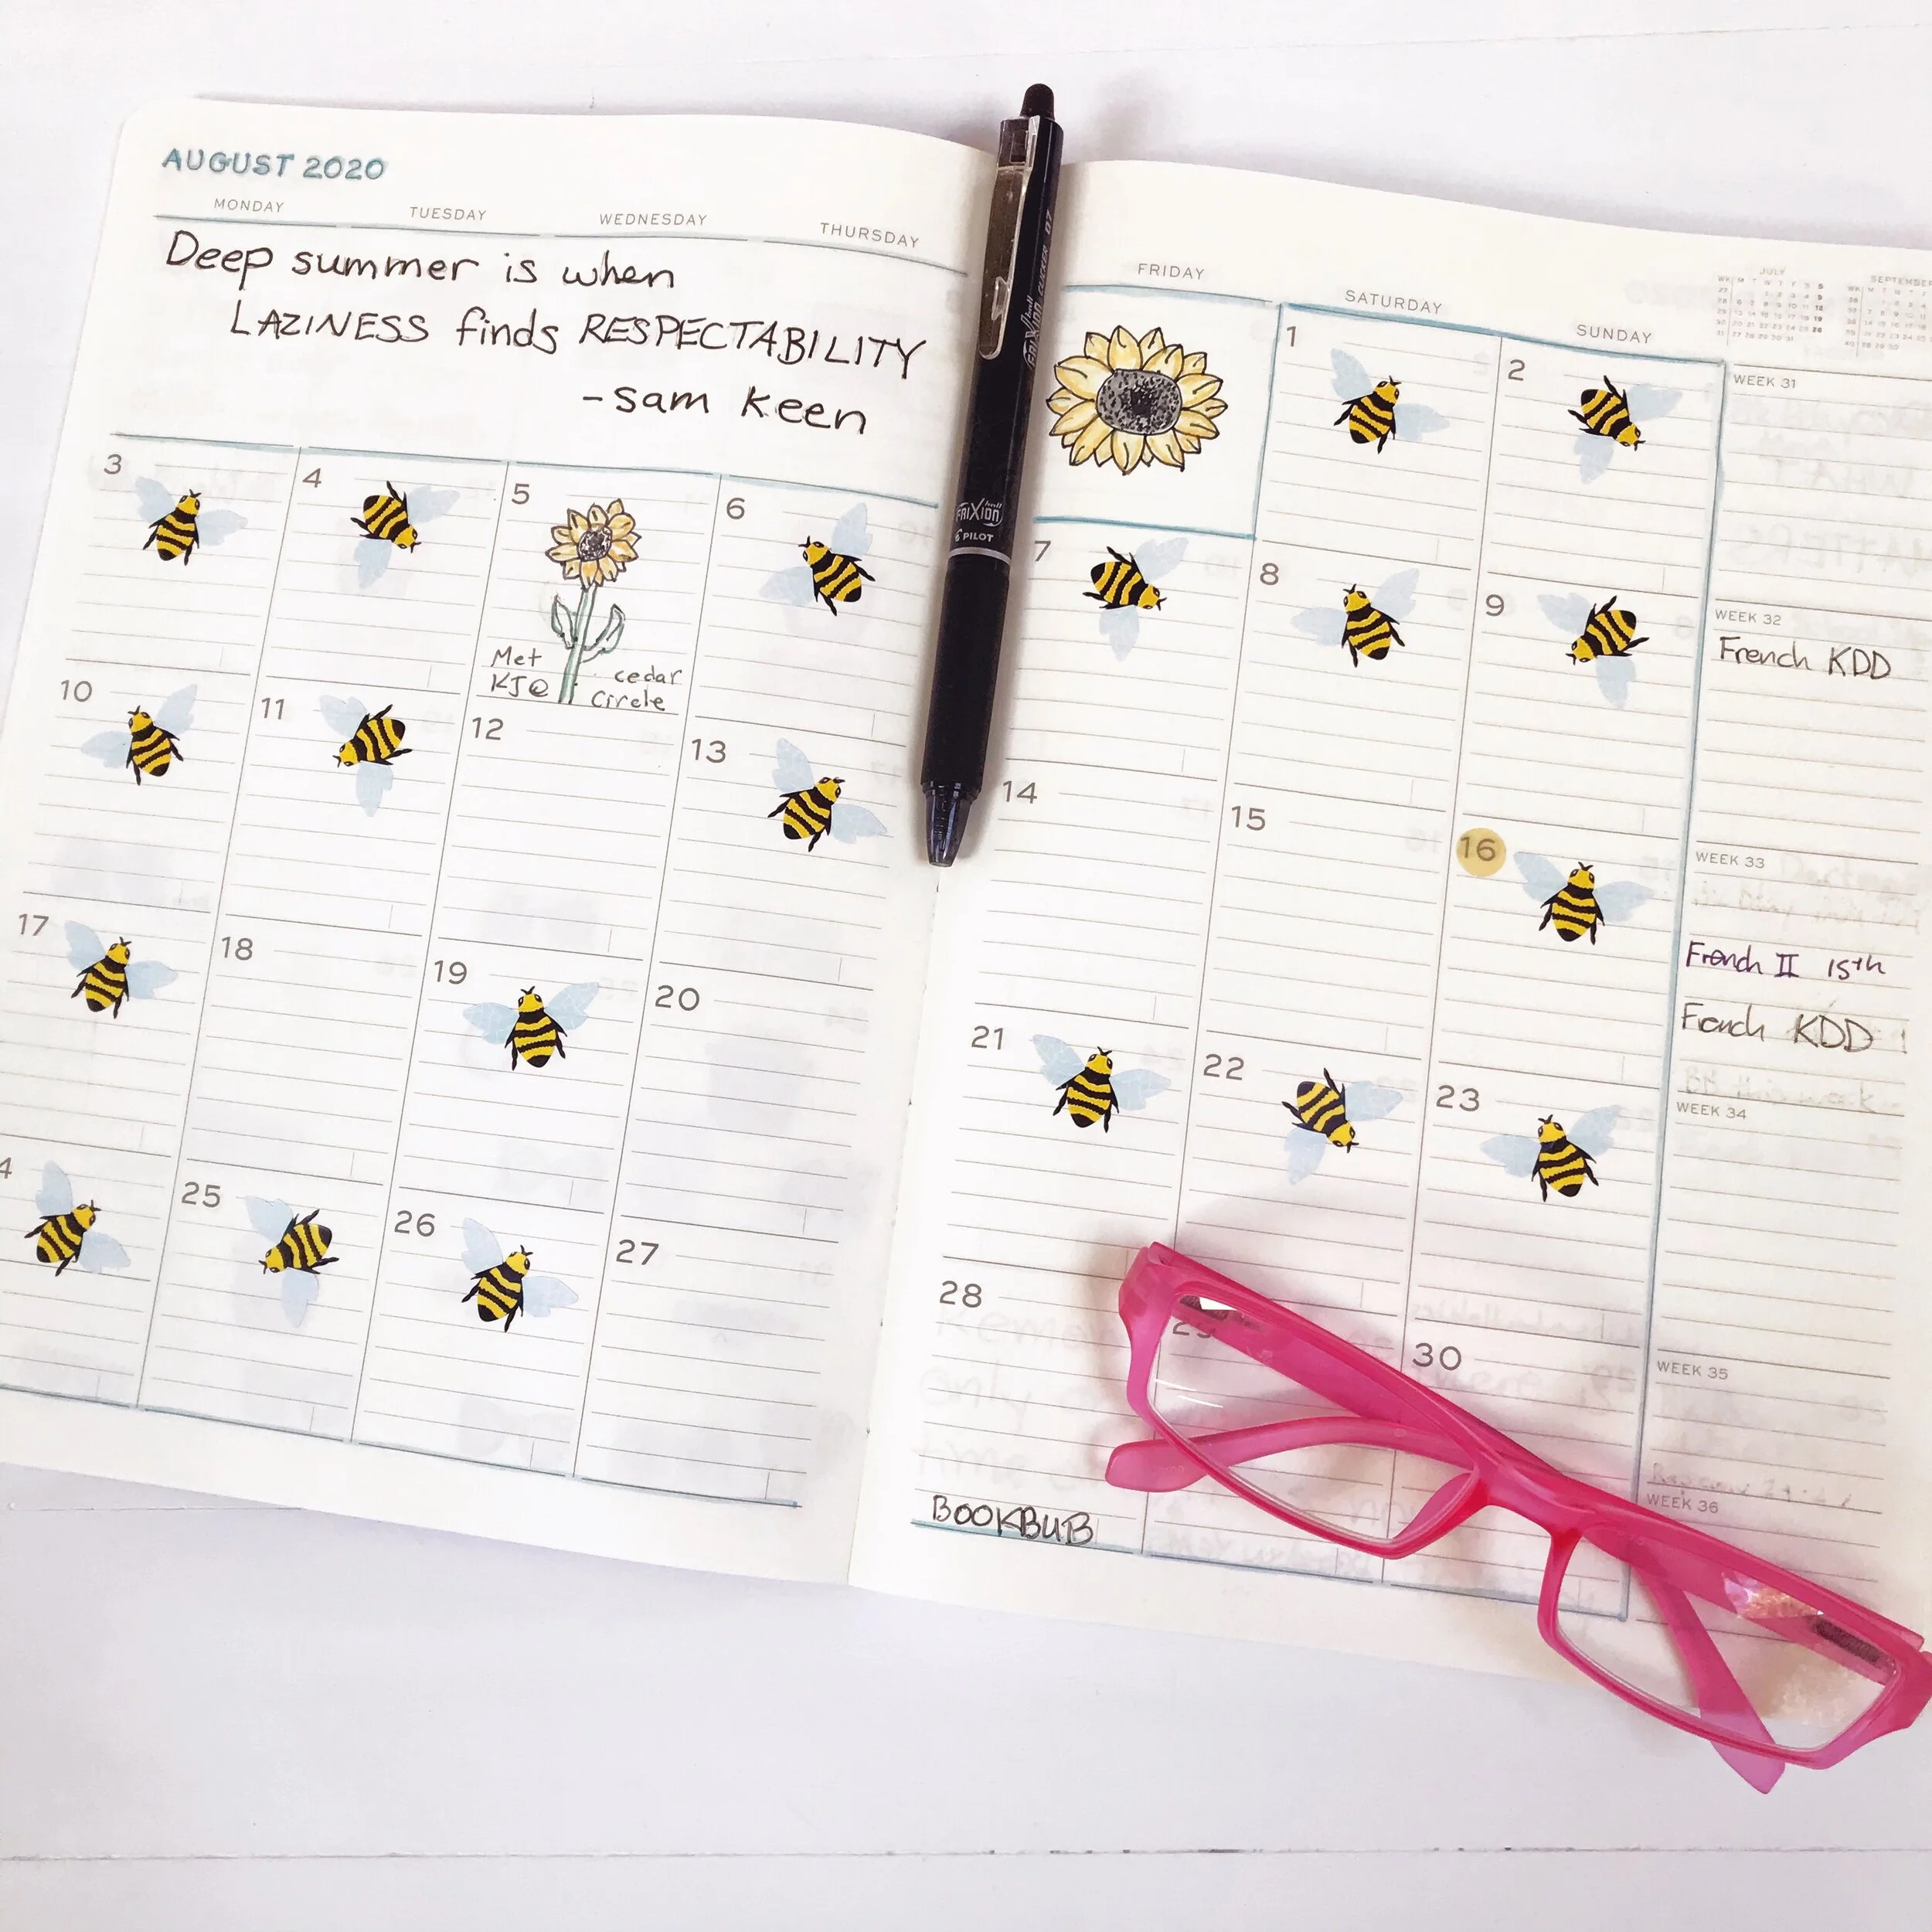 AUGUST 2020
MONDAY
TUESDAY
WEDNESDAY
THURSDAY
Deep summer is when
LAZINESS finds RESPECTABILITY
- Sam Keen
FRIDAY
SATURDAY
SUNDAY
JULY
SEPTEMBER
1
2
WEEK 31
3
4
5
6
Met
KJ@
cedar
Circle
7
8
9
WEEK 32
French KDD
10
11
12
13
14
15
16
WEEK 33
French II 15th
French KDD
17
18
19
20
21
22
23
WEEK 34
4
25
26
27
28
BOOKBUB
29
30
WEEK 35
WEEK 36
FRIXION CLICKER 07
FRIXION
PILOT